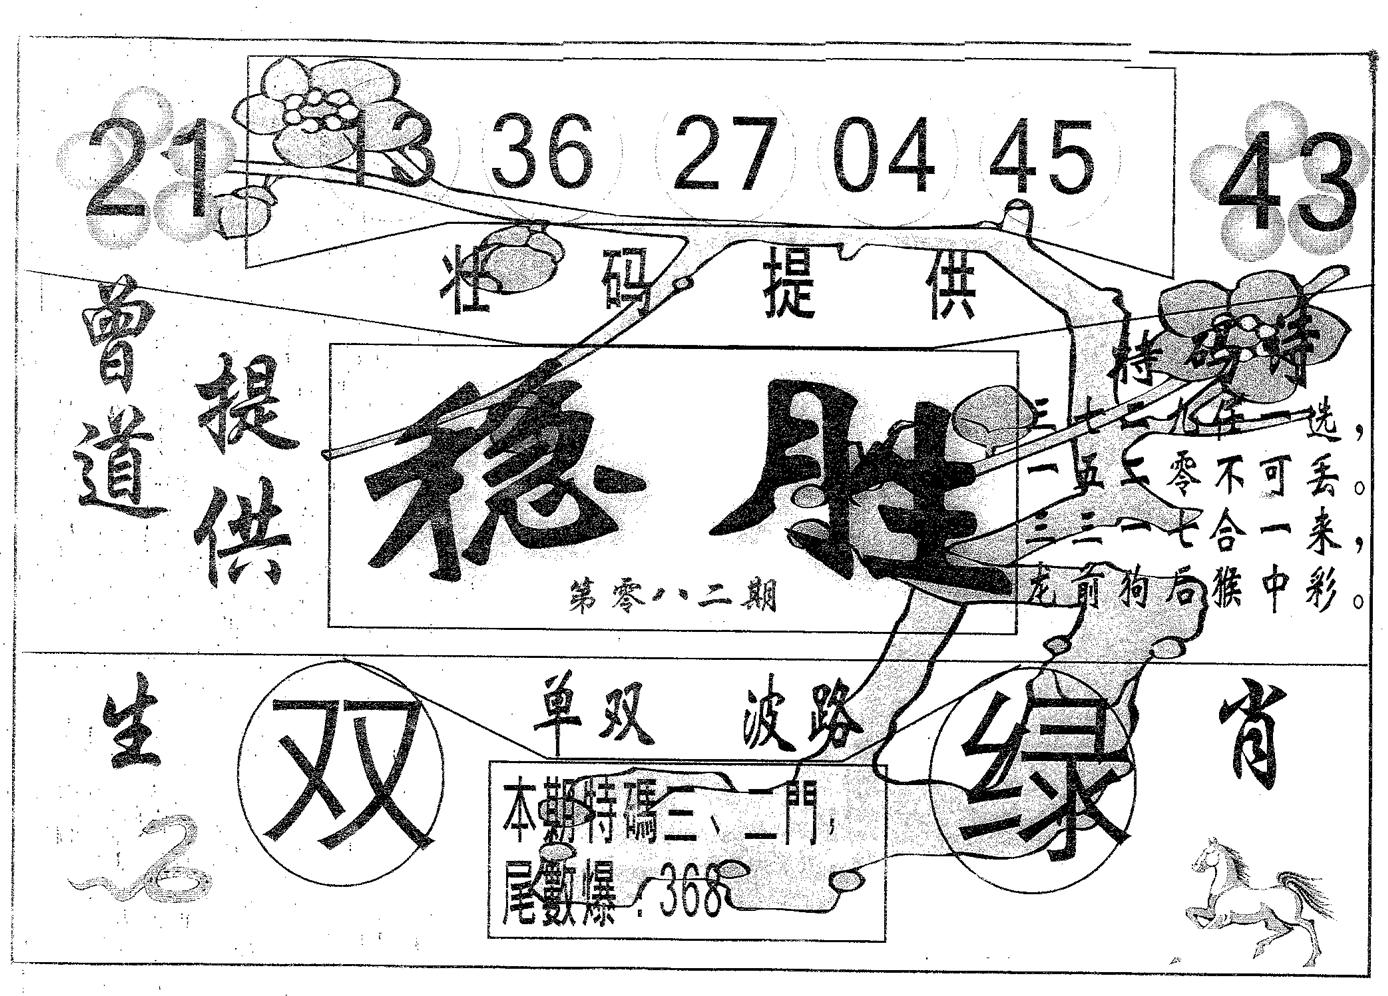 21 13 36 27 04 45 43
壮码提供
曾道
提供
稳胜
第零八二期
特码诗
三七二九任一选，
一五二零不可丢。
三三一七合一来，
龙前狗后猴中彩。
生
双
单双 波路
绿
肖
本期特碼三、二門，
尾數爆：368